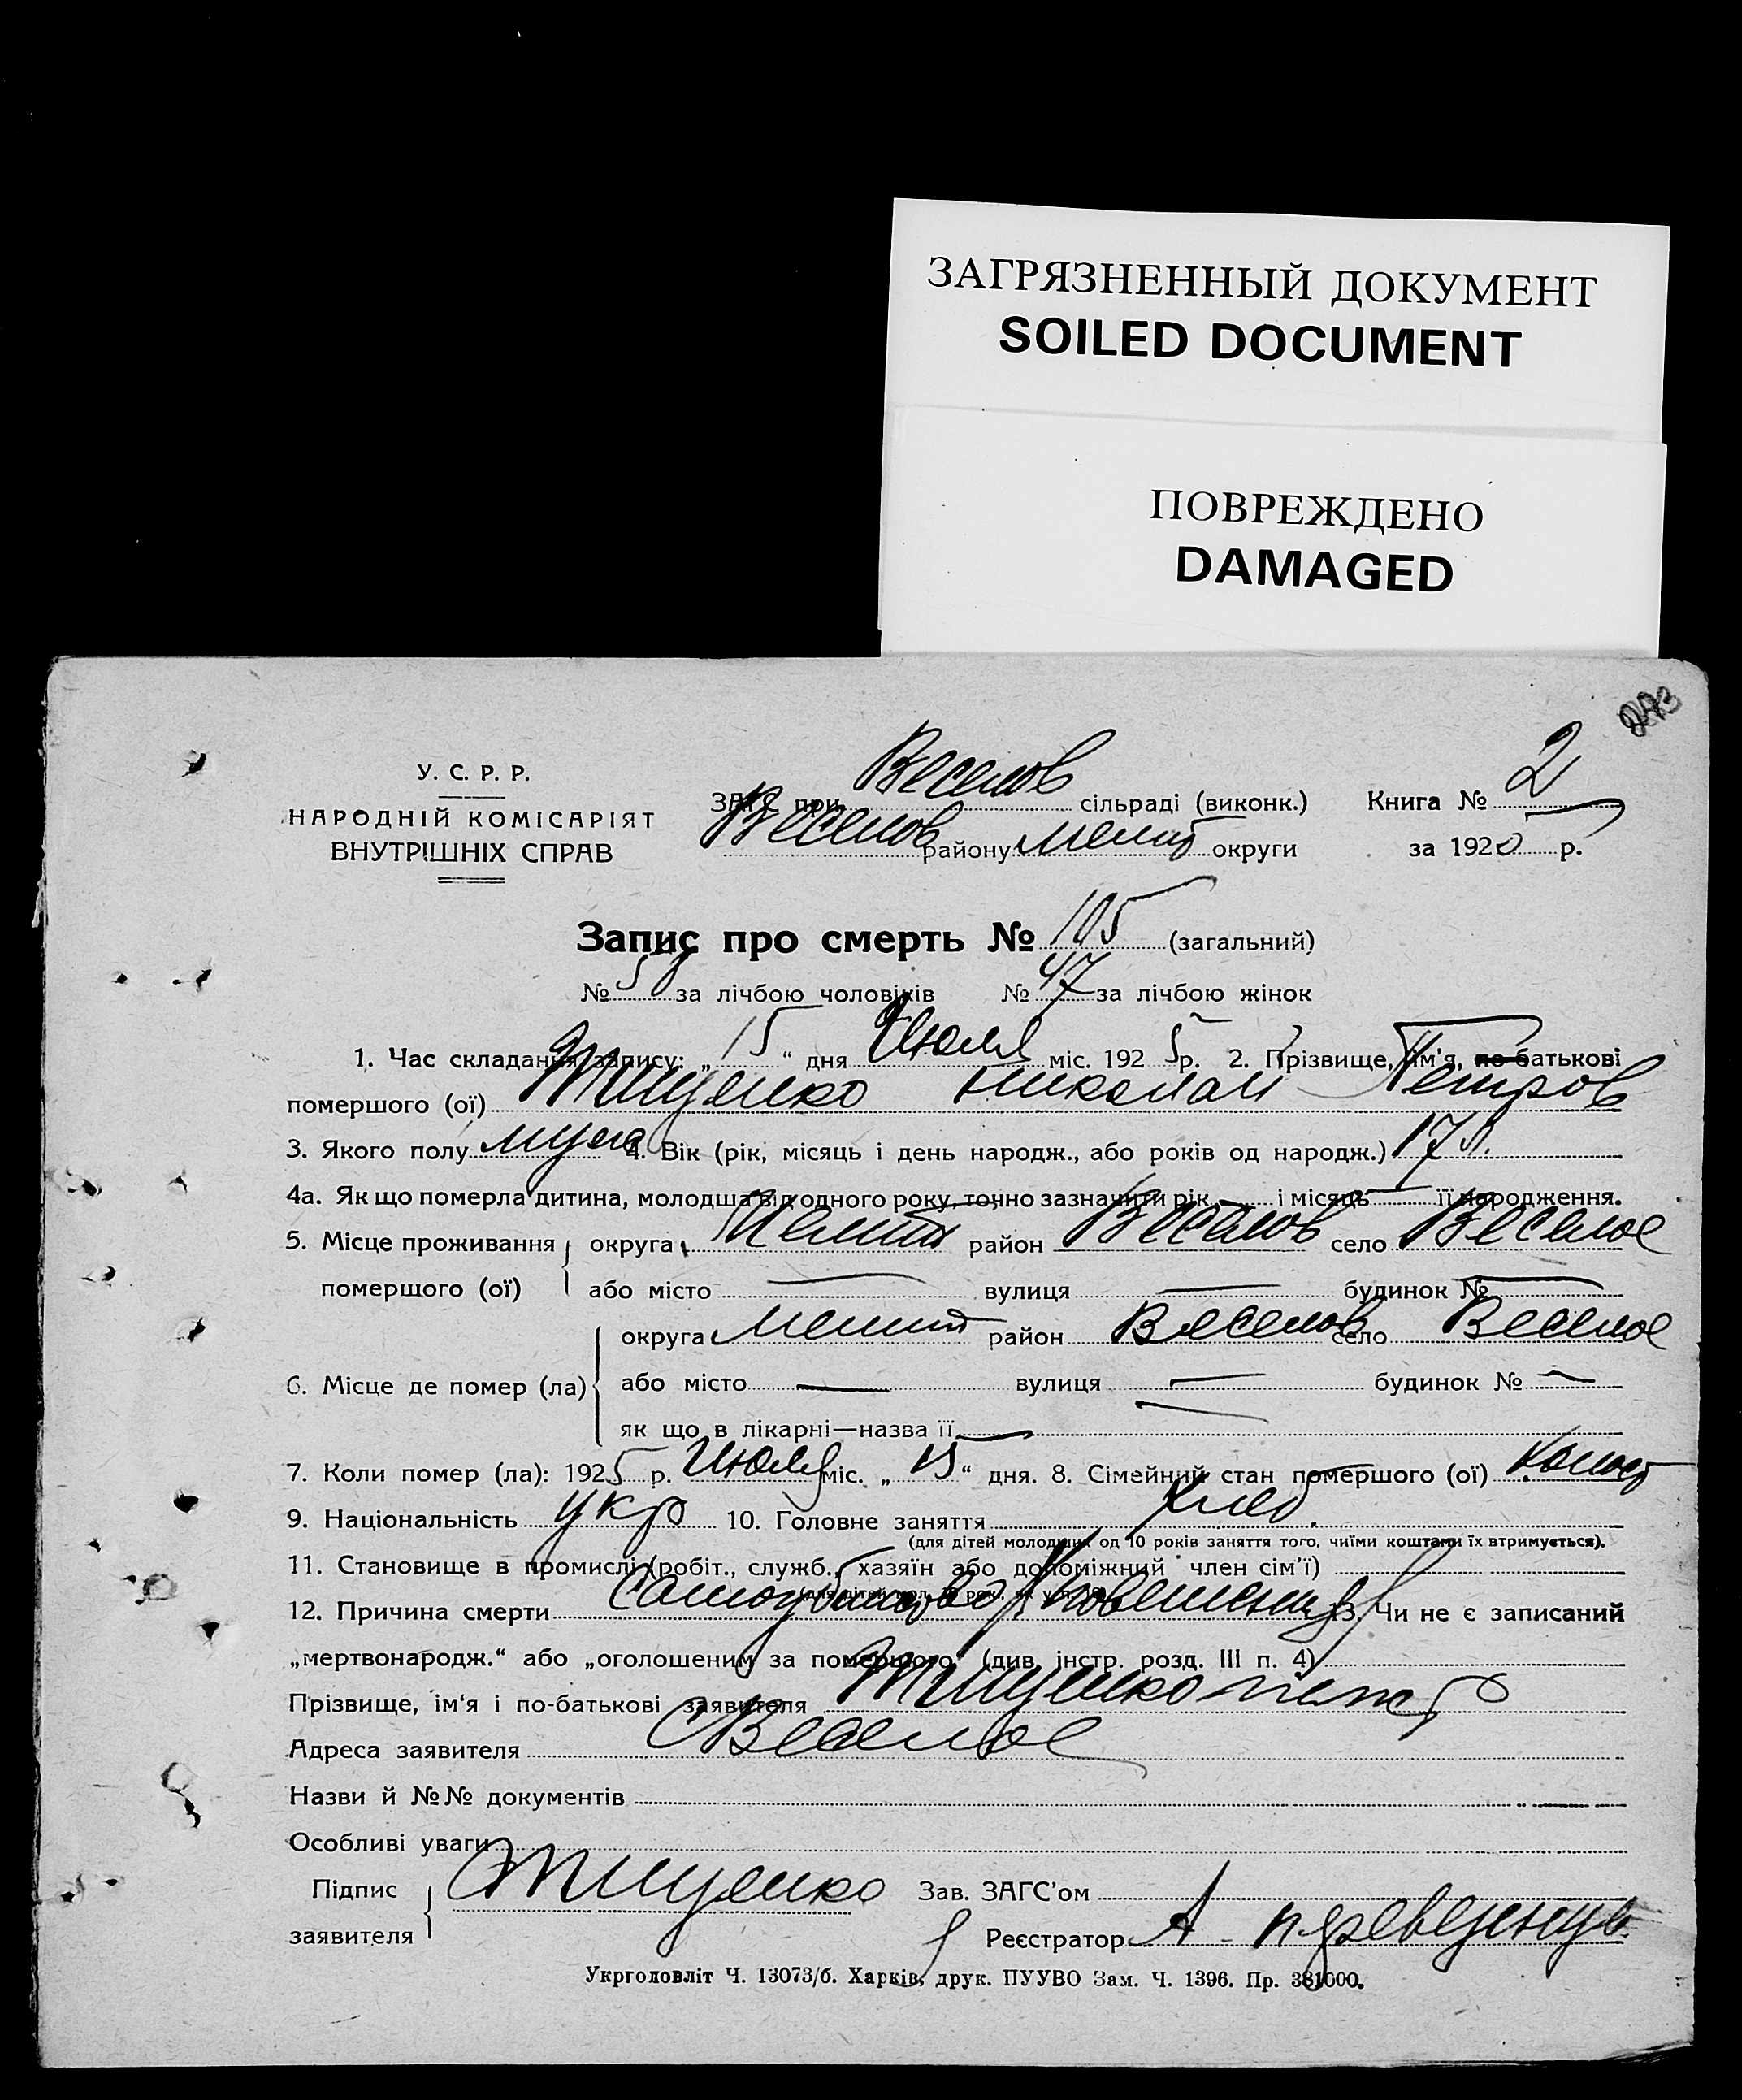 ЗАГРЯЗНЕННЫЙ ДОКУМЕНТ
SOILED DOCUMENT
ПОВРЕЖДЕНО
DAMAGED
У. С. Р. Р.
НАРОДНІЙ КОМІСАРІЯТ
ВНУТРІШНІХ СПРАВ
ЗАГС при Веселов сільраді (виконк.) Книга № 2
Веселов району Мелит округи за 1925 р.
Запис про смерть № 105 (загальний)
№ 58 за лічбою чоловіків № 47 за лічбою жінок
1. Час складання запису: „15“ дня Июля міс. 1925 р. 2. Прізвище, ім'я, по-батькові
помершого (ої) Тищенко Николай Петров
3. Якого полу муж 4. Вік (рік, місяць і день народж., або років од народж.) 17 л.
4а. Як що померла дитина, молодша від одного року, точно зазначити рік — і місяць — її народження.
5. Місце проживання округа Мелит район Веселов село Веселое
помершого (ої) або місто — вулиця — будинок № —
округа Мелит район Веселов село Веселое
6. Місце де помер (ла) або місто — вулиця — будинок № —
як що в лікарні—назва її —
7. Коли помер (ла): 1925 р. Июля міс. „15“ дня. 8. Сімейний стан помершого (ої) холост
9. Національність укр 10. Головне заняття хлеб.
(для дітей молодших од 10 років заняття того, чиїми коштами їх втримується).
11. Становище в промислі (робіт., служб., хазяїн або допоміжний член сім'ї)
12. Причина смерти 13. Чи не є записаний
„мертвонародж.“ або „оголошеним за помершого“ (див. інстр. розд. III п. 4)
Прізвище, ім'я і по-батькові заявителя Тищенко Петр
Адреса заявителя с Веселое
Назви й №№ документів
Особливі уваги
Підпис Тищенко Зав. ЗАГС'ом
заявителя Реєстратор А
Укрголовліт Ч. 13073/б. Харків, друк. ПУУВО Зам. Ч. 1396. Пр. 381000.